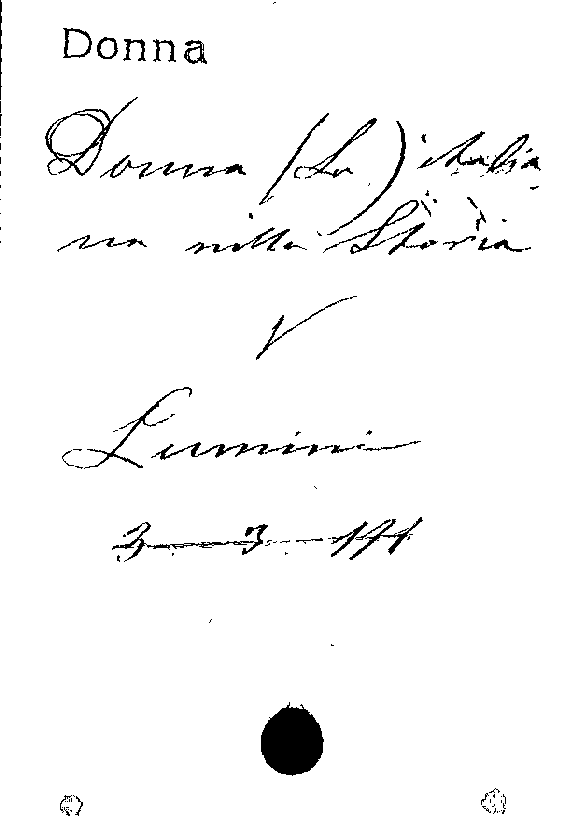 Donna
Donna (La) italia
na nella Storia
V
Lumini
3 3